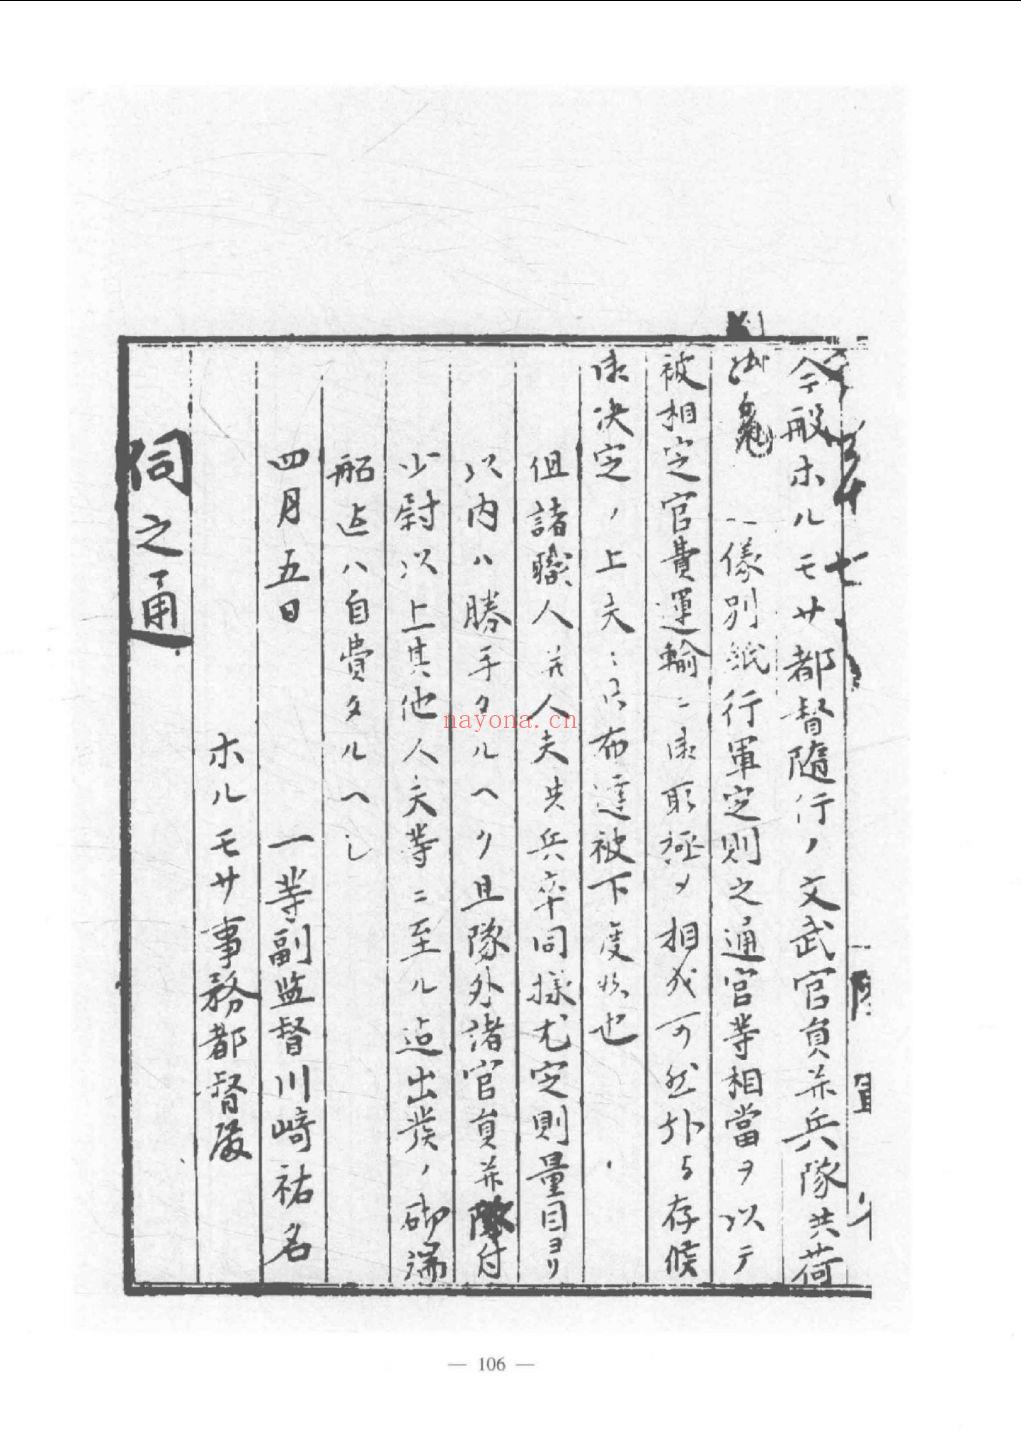 今般ホルモサ都督隨行ノ文武官員并兵隊共荷
儀別紙行軍定則之通官等相當ヲ以テ
被相定官費運輸ニ御取極メ相成可然ト存候
御決定ノ上夫々布達被下度候也
但諸職人并人夫共兵卒同様尤定則量目ヨリ
以内ハ勝手タルヘク且隊外諸官員并隊付
少尉以上其他人夫等ニ至ル迄出發ノ砌端
船迄ハ自費タルヘシ
四月五日 一等副監督川﨑祐名
ホルモサ事務都督殿
伺之通
nayona.cn
— 106 —